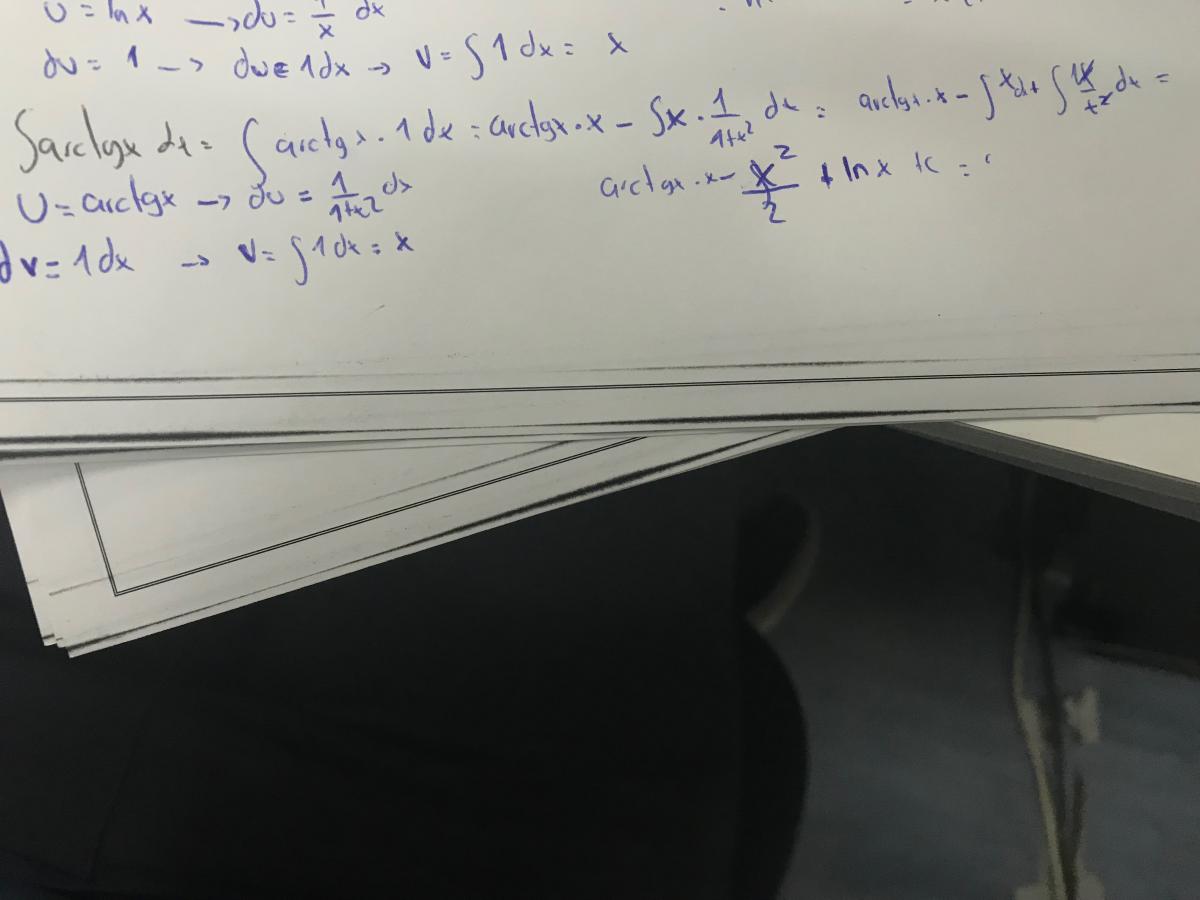 U = ln x → du = 1/x dx
dv = 1 → dv = 1dx → v = ∫ 1 dx = x
∫ arctgx dx = ∫ arctgx · 1 dx = arctgx · x - ∫ x · 1/1+x² dx = arctgx · x - ∫ x dx + ∫ 1x/x² dx =
arctgx · x - x²/2 + ln x + c =
U = arctgx → du = 1/1+x² dx
dv = 1dx → v = ∫ 1 dx = x